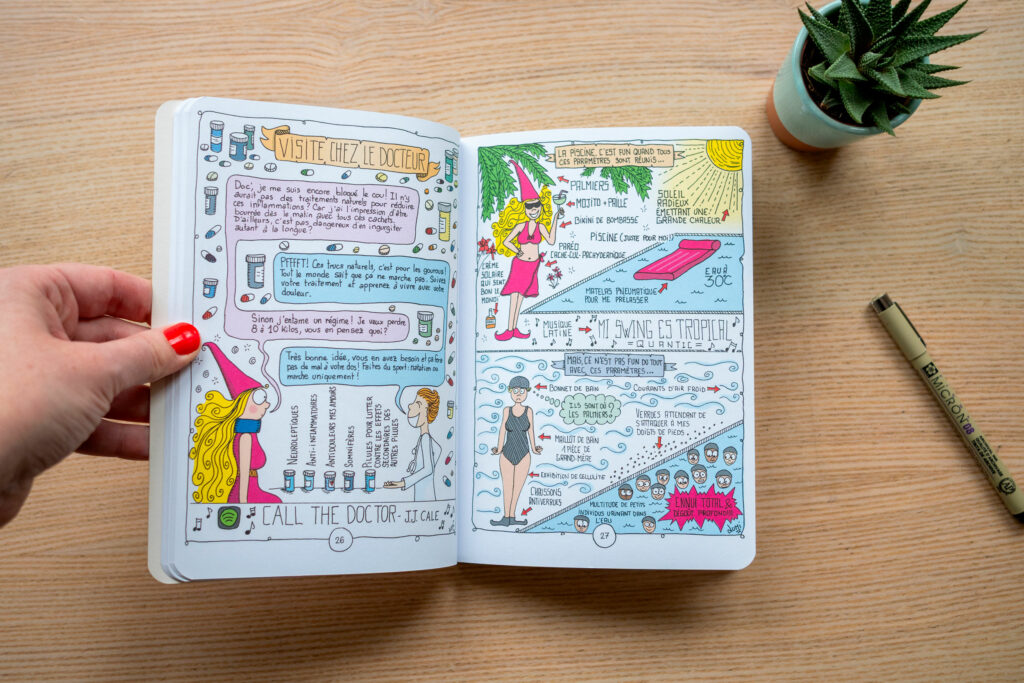 VISITE CHEZ LE DOCTEUR
Doc', je me suis encore bloqué le cou! Il n'y
aurait pas des traitements naturels pour réduire
ces inflammations? Car j'ai l'impression d'être
bourrée dès le matin avec tous ces cachets.
D'ailleurs, c'est pas dangereux d'en ingurgiter
autant à la longue?
PFFFFT! Ces trucs naturels, c'est pour les gourous!
Tout le monde sait que ça ne marche pas. Suivez
votre traitement et apprenez à vivre avec votre
douleur.
Sinon j'entame un régime! Je veux perdre
8 à 10 kilos, vous en pensez quoi?
Très bonne idée, vous en avez besoin et ça fera
pas de mal à votre dos! Faites du sport: natation ou
marche uniquement!
NEUROLEPTIQUES
ANTI-INFLAMMATOIRES
ANTIDOULEURS MES AMOURS
SOMNIFÈRES
PILULES POUR LUTTER
CONTRE LES EFFETS
SECONDAIRES DES
AUTRES PILULES
CALL THE DOCTOR - J.J. CALE
26
LA PISCINE, C'EST FUN QUAND TOUS
CES PARAMÈTRES SONT RÉUNIS...
PALMIERS
MOJITO + PAILLE
BIKINI DE BOMBASSE
SOLEIL
RADIEUX
ÉMETTANT UNE
GRANDE CHALEUR
PARÉO
CACHE-CUL-PACHYDERMIQUE
CRÈME
SOLAIRE
QUI SENT
BON LE
MONOÏ
PISCINE (JUSTE POUR MOI)
EAU À
30°C
MATELAS PNEUMATIQUE
POUR ME PRÉLASSER
MUSIQUE
LATINE
MI SWING ES TROPICAL
= QUANTIC =
MAIS, CE N'EST PAS FUN DU TOUT
AVEC CES PARAMÈTRES...
BONNET DE BAIN
COURANTS D'AIR FROID
ILS SONT OÙ
LES PALMIERS?
VERRUES ATTENDANT DE
S'ATTAQUER À MES
DOIGTS DE PIEDS
MAILLOT DE BAIN
1 PIÈCE DE
GRAND-MÈRE
EXHIBITION DE CELLULITE
CHAUSSONS
ANTIVERRUES
MULTITUDE DE PETITS
INDIVIDUS URINANT DANS
L'EAU
ENNUI TOTAL &
DÉGOÛT PROFOND!
27
MICRON